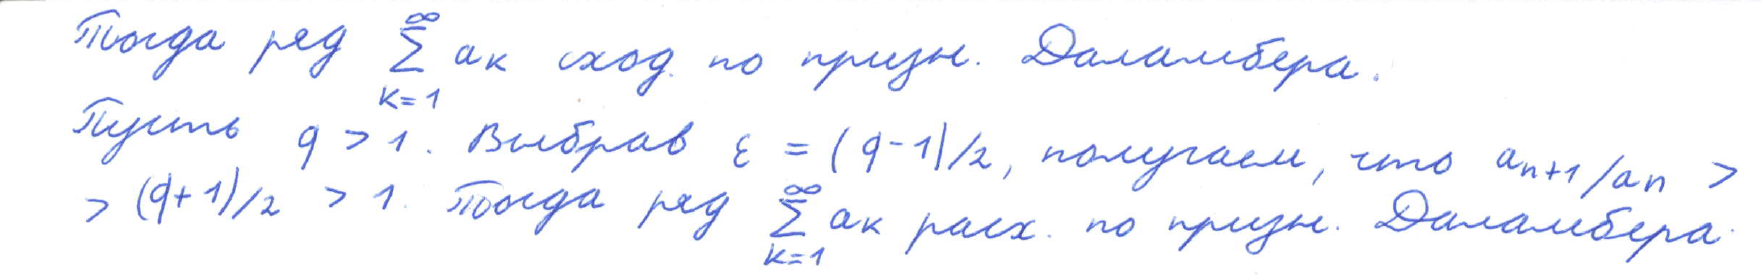 Тогда ряд ∑_{k=1}^{∞} a_k сход. по призн. Даламбера.
Пусть q > 1. Выбрав ε = (q-1)/2, получаем, что a_{n+1}/a_n >
> (q+1)/2 > 1. Тогда ряд ∑_{k=1}^{∞} a_k расх. по призн. Даламбера.